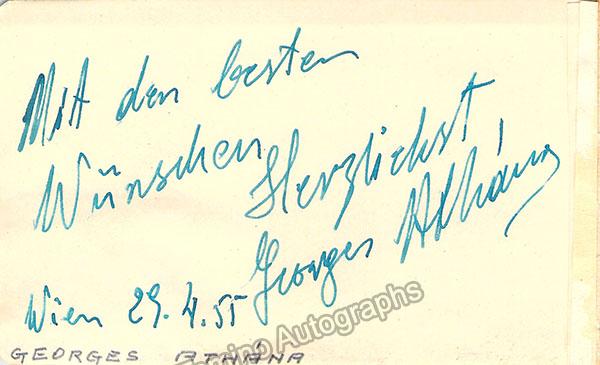 Mit den besten
Wünschen Herzlichst
Georges Athana
Wien 29.4.55
GEORGES ATHANA
Tamino Autographs